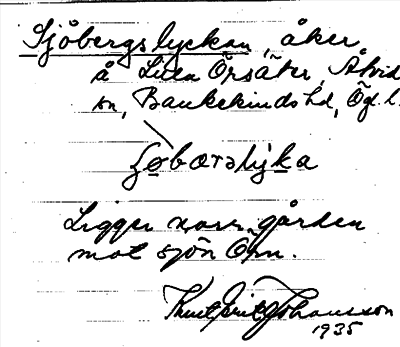 Sjöbergslyckan, åker
å Lilla Örsäter, Åtvid
sn, Bankekinds hd, Ögl. l.
ʃøbærəlyka
Ligger norr gården
mot sjön Önn.
Knut Erit Johansson
1935